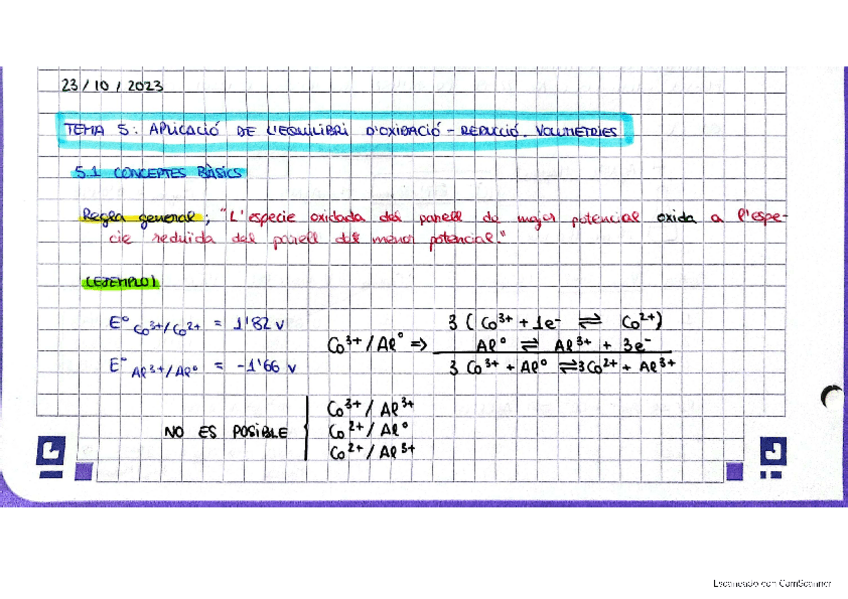 23/10/2023
TEMA 5: APLICACIÓ DE L'EQUILIBRI D'OXIDACIÓ-REDUCCIÓ. VOLUMETRIES
5.1 CONCEPTES BÀSICS
Regla general; "L'especie oxidada del parell de major potencial oxida a l'espe-
cie reduïda del parell del menor potencial."
(EJEMPLO)
E° Co³⁺/Co²⁺ = 1'82 v
E° Al³⁺/Al° = -1'66 v
Co³⁺/Al° ⇒
3 (Co³⁺ + 1e⁻ ⇌ Co²⁺)
Al° ⇌ Al³⁺ + 3e⁻
3 Co³⁺ + Al° ⇌ 3Co²⁺ + Al³⁺
NO ES POSIBLE
Co³⁺/Al³⁺
Co²⁺/Al°
Co²⁺/Al³⁺
Escaneado con CamScanner